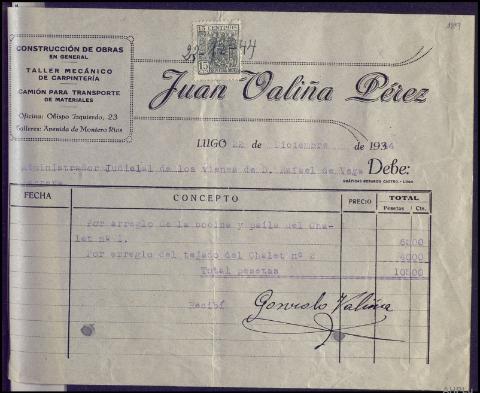 CONSTRUCCIÓN DE OBRAS
EN GENERAL
TALLER MECÁNICO
DE CARPINTERÍA
CAMIÓN PARA TRANSPORTE
DE MATERIALES
Oficina: Obispo Izquierdo, 23
Talleres: Avenida de Montero Ríos
15 CENTIMOS
Juan Valiña Pérez
LUGO 22 de Diciembre de 193
Administrador Judicial de los vienes de D. Rafael de Vega
Debe:
FECHA
CONCEPTO
PRECIO
TOTAL
Pesetas
Cts.
Por arreglo de la cocina y paila del Cha-
let nº 1.
Por arreglo del tejado del Chalet nº 2
Total pesetas
Recibí
Gonzalo Valiña